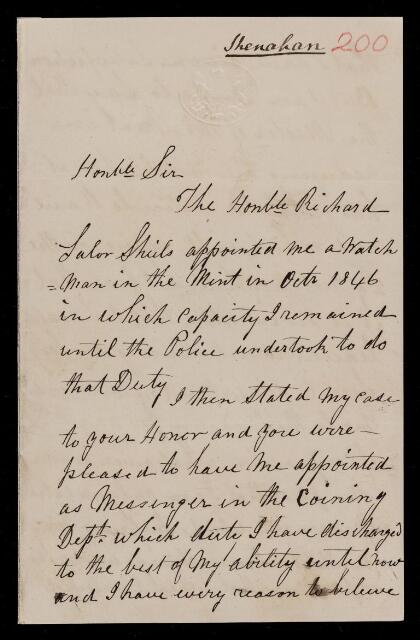 Shenahan 200
Honble Sir
The Honble Richard
Lalor Shiels appointed me a Watch
=man in the Mint in Octr 1846
in which capacity I remained
until the Police undertook to do
that Duty
I then stated my case
to your Honor and you were
pleased to have me appointed
as Messenger in the Coining
Dept. which duty I have discharged
to the best of my ability until now
and I have every reason to beleive